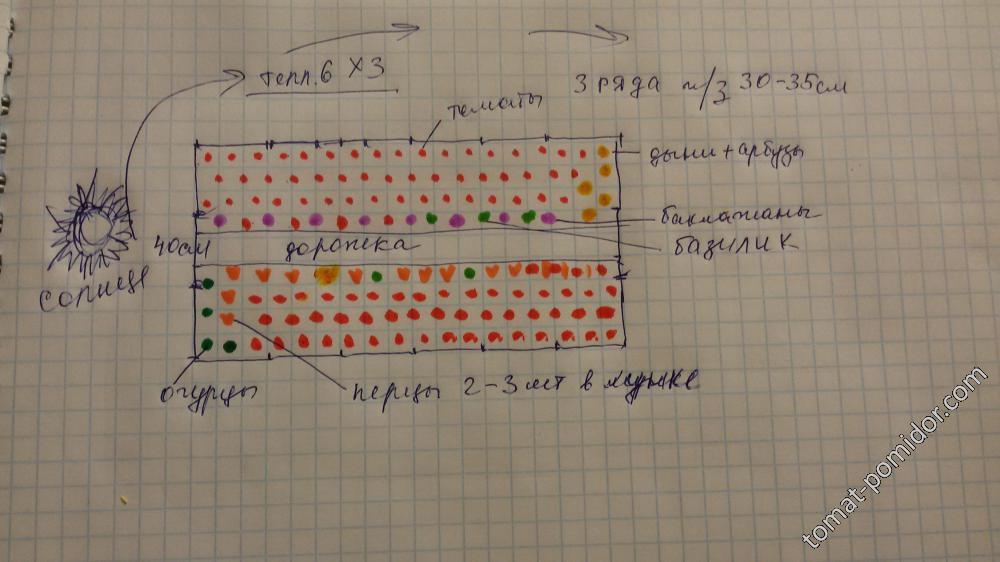 тепл. 6 х 3
3 ряда ч/з 30-35см
томаты
дыни + арбузы
баклажаны
базилик
40см
дорожка
солнце
огурцы
перцы 2-3 шт в лунке
tomat-pomidor.com